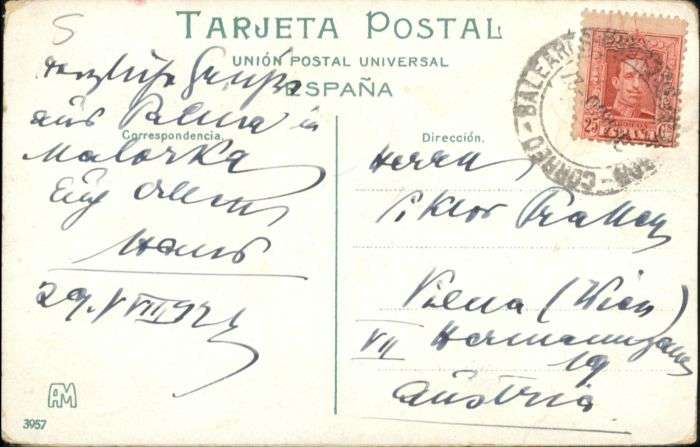 5
TARJETA POSTAL
UNIÓN POSTAL UNIVERSAL
ESPAÑA
Correspondencia.
Herzliche Grüße
aus Palma in
Malorka
Hans
Dirección.
Herrn
Viktor
Viena (Wien)
VII Hermanngasse
19
Austria
CORREO - BALEARES
25 25
ESPAÑA
AM
3957